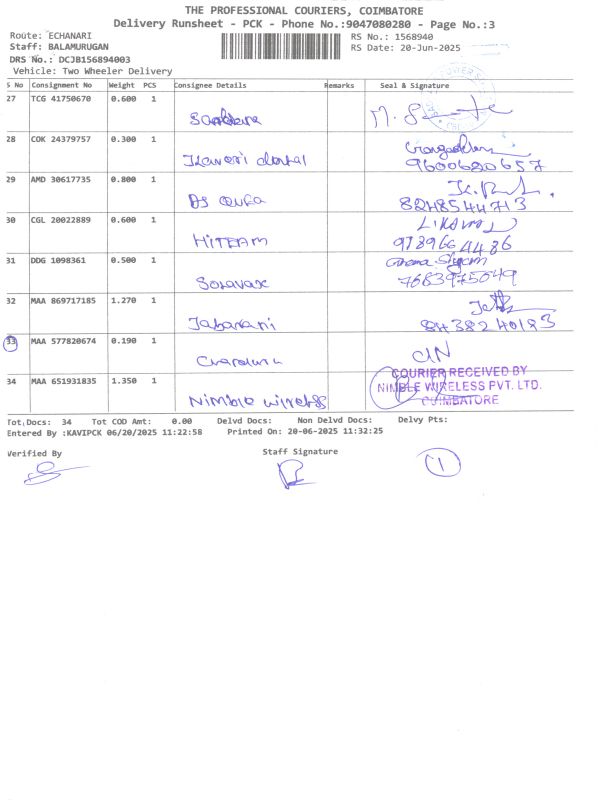 THE PROFESSIONAL COURIERS, COIMBATORE
Delivery Runsheet - PCK - Phone No.:9047080280 - Page No.:3
Route: ECHANARI
Staff: BALAMURUGAN
DRS No.: DCJB156894003
Vehicle: Two Wheeler Delivery
RS No.: 1568940
RS Date: 20-Jun-2025
S No Consignment No Weight PCS Consignee Details Remarks Seal & Signature
27 TCG 41750670 0.600 1
28 COK 24379757 0.300 1 dental 9600680657
29 AMD 30617735 0.800 1 8248544713
30 CGL 20022889 0.600 1 HITEAM 9789664486
31 DDG 1098361 0.500 1 7683975049
32 MAA 869717185 1.270 1 8438240183
33 MAA 577820674 0.190 1
34 MAA 651931835 1.350 1 Nimble wireless
COURIER RECEIVED BY
NIMBLE WIRELESS PVT. LTD.
COIMBATORE
Tot Docs: 34 Tot COD Amt: 0.00 Delvd Docs: Non Delvd Docs: Delvy Pts:
Entered By :KAVIPCK 06/20/2025 11:22:58 Printed On: 20-06-2025 11:32:25
Verified By Staff Signature
1